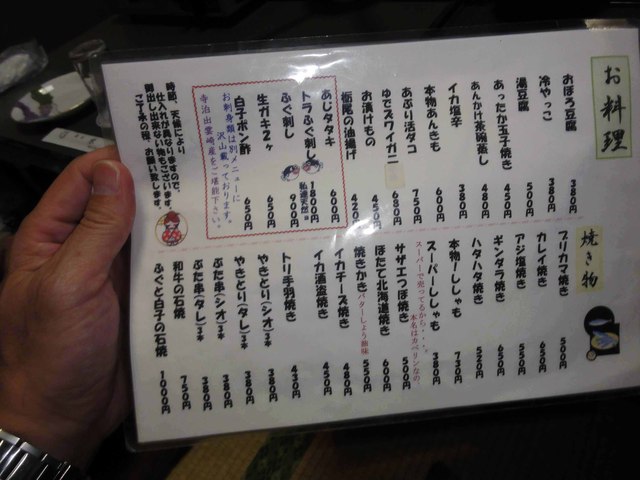 お料理
おぼろ豆腐 380円
冷やっこ 380円
湯豆腐 550円
あったか玉子焼き 450円
あんかけ茶碗蒸し 480円
イカ塩辛 380円
本物あんきも 600円
あぶり活ダコ 750円
ゆでズワイガニ 680円
お漬けもの
栃尾の油揚げ 450円
あじタタキ 600円
トラふぐ刺し 1800円
ふぐ刺し 900円
生ガキ2ヶ 650円
白子ポン酢 650円
お刺身類は別メニューに
沢山載っております。
寺泊出雲崎産をご堪能下さい。
時節、天候により
仕入れが異なりますので、
御出し出来ない物もございます。
ご了承の程、お願い致します。
焼き物
ブリカマ焼き 500円
カレイ焼き 650円
アジ塩焼き 550円
ギンダラ焼き 650円
ハタハタ焼き 520円
本物!ししゃも
スーパーししゃも 380円
スーパーで売ってるから・・・。
本名はカペリンなの。
サザエつぼ焼き 500円
ほたて北海焼き 600円
焼きかき バターしょう油味 550円
イカチーズ焼き 480円
イカ酒盗焼き 450円
トリ手羽焼き 430円
やきとり(シオ)3* 380円
やきとり(タレ)3* 380円
ぶた串(シオ)3* 380円
ぶた串(タレ)3* 380円
和牛の石焼 750円
ふぐと白子の石焼 1000円